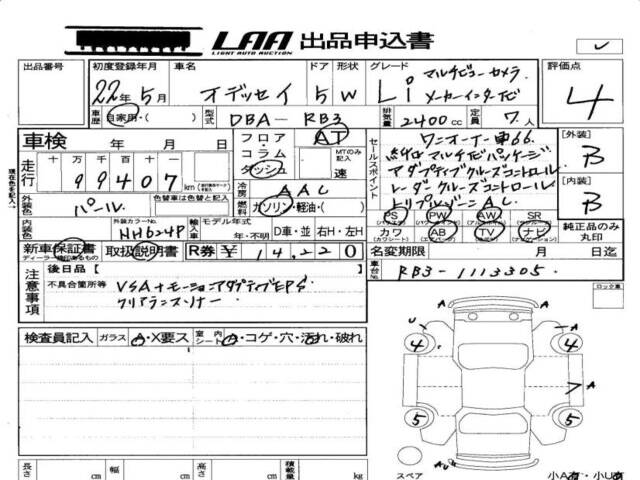 LAA 出品申込書
LIGHT AUTO AUCTION
出品番号 初度登録年月 車名 ドア 形状 グレード 評価点
22年 5月 オデッセイ 5 W Li マルチビューカメラ
メーカーインターナビ 4
車歴 自家用・( ) 型式 DBA-RB3 排気量 2400cc 定員 7人
車検 年 月 日
フロア・コラム ダッシュ AT MTのみ記入 速
セールスポイント
ワンオーナー車
マルチナビパッケージ
アダプティブクルーズコントロール
レーダークルーズコントロール
トリプルゾーンAC
[外装] B
[内装] B
走行 十 万 千 百 十
99407 km
冷房 AAC
外装色 パール 色替車は色替と記入
燃料 ガソリン・軽油・( )
内装色 外装カラーNo. NH624P 輸入車 モデル年式 年・不明 D車・並 右H・左H
PS PW AW SR
カワ AB TV ナビ
純正品のみ丸印
新車保証書 取扱説明書 R券 ¥ 14,220
ディーラー捺印あるもの
名変期限 月 日迄
車台No. RB3-1113305
現在色を記入。
注意事項 後日品( )
不具合箇所等 VSA+モーションアダプティブEPS
クリアランスソナー
ロック車
検査員記入 ガラス A・X要ス 室内シート コゲ・穴・汚れ・破れ
A
U 4 4 A
A 7 A
5 5
A
スペア 小A有・小U有
長さ cm 幅 cm 高さ cm 積載量 kg